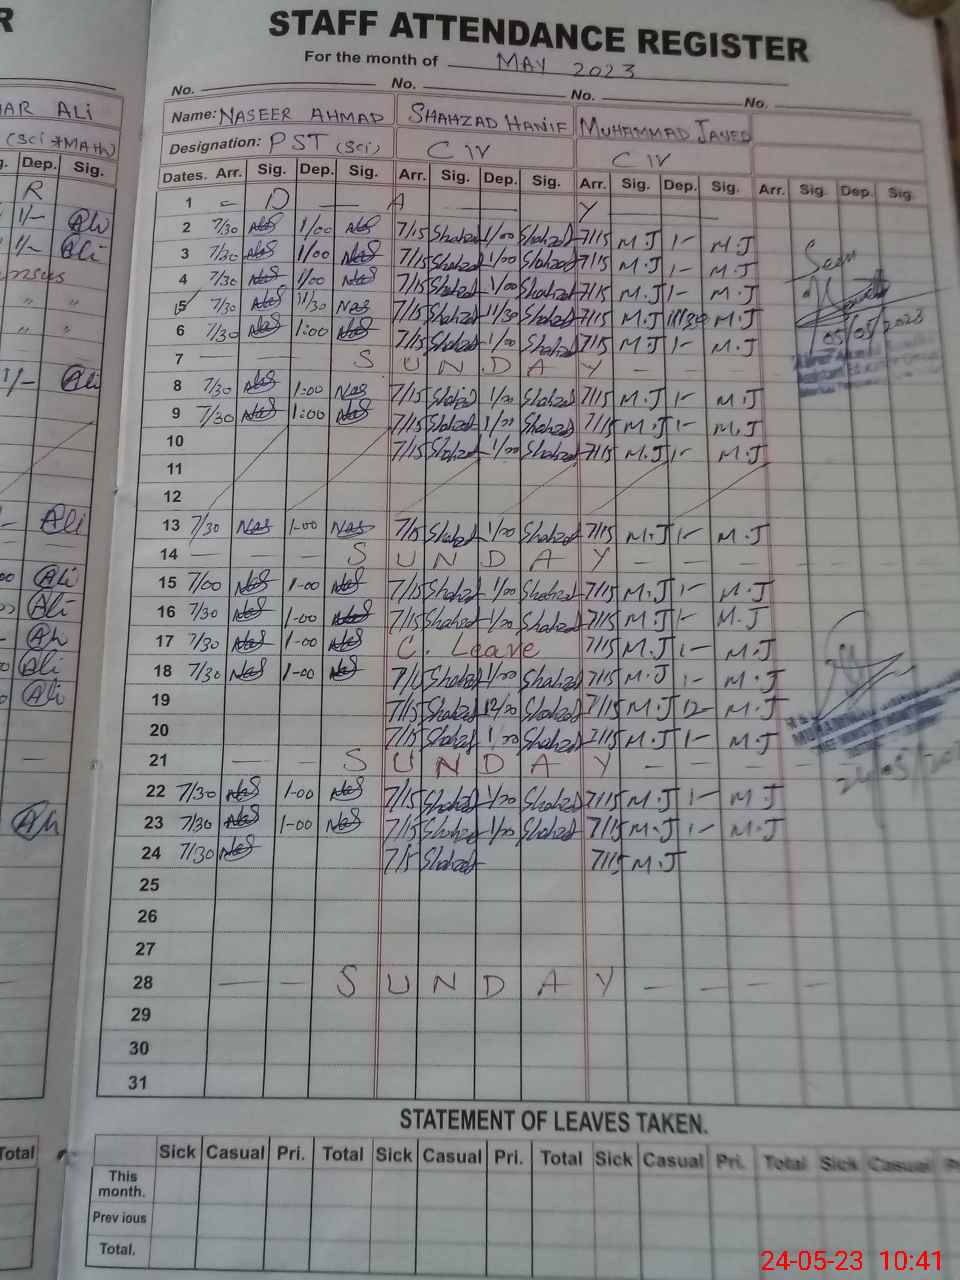 R
STAFF ATTENDANCE REGISTER
For the month of MAY 2023
No. No. No. No.
AR ALi
Name: NASEER AHMAD SHAHZAD HANIF MUHAMMAD JAVED
(Sci +MATH)
Designation: PST (Sci) C IV C IV
Dep. Sig.
Dates. Arr. Sig. Dep. Sig. Arr. Sig. Dep. Sig. Arr. Sig. Dep. Sig. Arr. Sig. Dep. Sig.
R
1 D A Y
1/- Ali
2 7/30 Nas 1/00 Nas 7/15 Shahzad 1/00 Shahzad 7/15 M.J 1- M.J
1/- Ali
3 7/30 Nas 1/00 Nas 7/15 Shahzad 1/00 Shahzad 7/15 M.J 1- M.J
Seen
4 7/30 Nas 1/00 Nas 7/15 Shahzad 1/00 Shahzad 7/15 M.J 1- M.J
" "
5 7/30 Nas 11/30 Nas 7/15 Shahzad 11/30 Shahzad 7/15 M.J 11/30 M.J
05/05/2023
" "
6 7/30 Nas 1:00 Nas 7/15 Shahzad 1/00 Shahzad 7/15 M.J 1- M.J
7 S U N D A Y
1/- Ali
8 7/30 Nas 1:00 Nas 7/15 Shahzad 1/00 Shahzad 7/15 M.J 1- M.J
9 7/30 Nas 1:00 Nas 7/15 Shahzad 1/00 Shahzad 7/15 M.J 1- M.J
10 7/15 Shahzad 1/00 Shahzad 7/15 M.J 1- M.J
11
12
Ali
13 7/30 Nas 1-00 Nas 7/15 Shahzad 1/00 Shahzad 7/15 M.J 1- M.J
14 S U N D A Y
Ali
15 7/00 Nas 1-00 Nas 7/15 Shahzad 1/00 Shahzad 7/15 M.J 1- M.J
Ali
16 7/30 Nas 1-00 Nas 7/15 Shahzad 1/00 Shahzad 7/15 M.J 1- M.J
Ali
17 7/30 Nas 1-00 Nas C. Leave 7/15 M.J 1- M.J
Ali
18 7/30 Nas 1-00 Nas 7/15 Shahzad 1/00 Shahzad 7/15 M.J 1- M.J
Ali
19 7/15 Shahzad 12/00 Shahzad 7/15 M.J 12- M.J
20 7/15 Shahzad 1/00 Shahzad 7/15 M.J 1- M.J
21 S U N D A Y
22 7/30 Nas 1-00 Nas 7/15 Shahzad 1/00 Shahzad 7/15 M.J 1- M.J
Ali
23 7/30 Nas 1-00 Nas 7/15 Shahzad 1/00 Shahzad 7/15 M.J 1- M.J
24 7/30 Nas 7/15 Shahzad 7/15 M.J
25
26
27
28 S U N D A Y
29
30
31
STATEMENT OF LEAVES TAKEN.
Total
Sick Casual Pri. Total Sick Casual Pri. Total Sick Casual Pri. Total Sick Casual
This month.
Previous
Total.
24-05-23 10:41